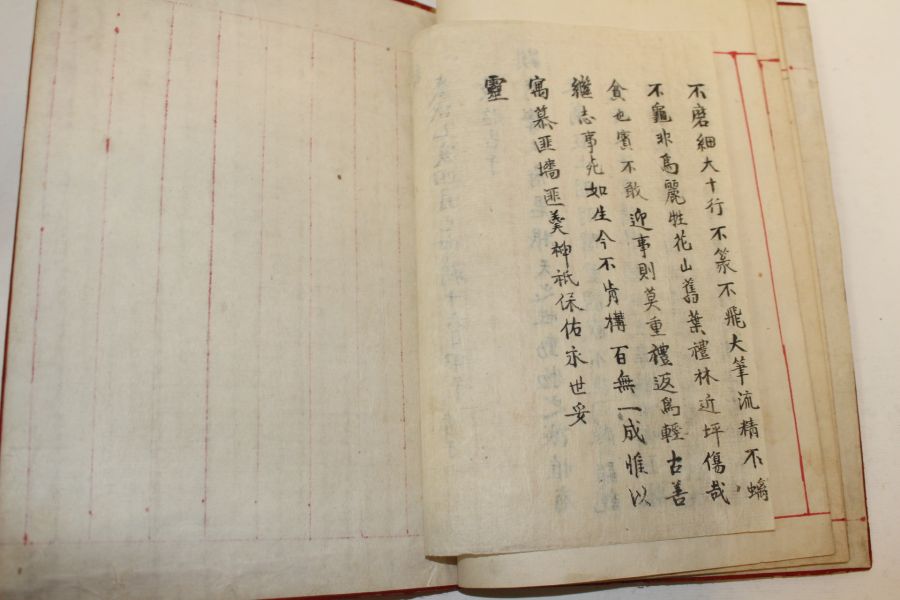 不磨細大十行不篆不飛大筆流精不螭
不龜非爲麗牲花山舊葉禮林近坪傷哉
貧也實不敢迎事則莫重禮返爲輕古善
繼志事死如生今不肯構百無一成惟以
寓慕匪墻匪羹神祇保佑永世妥
靈